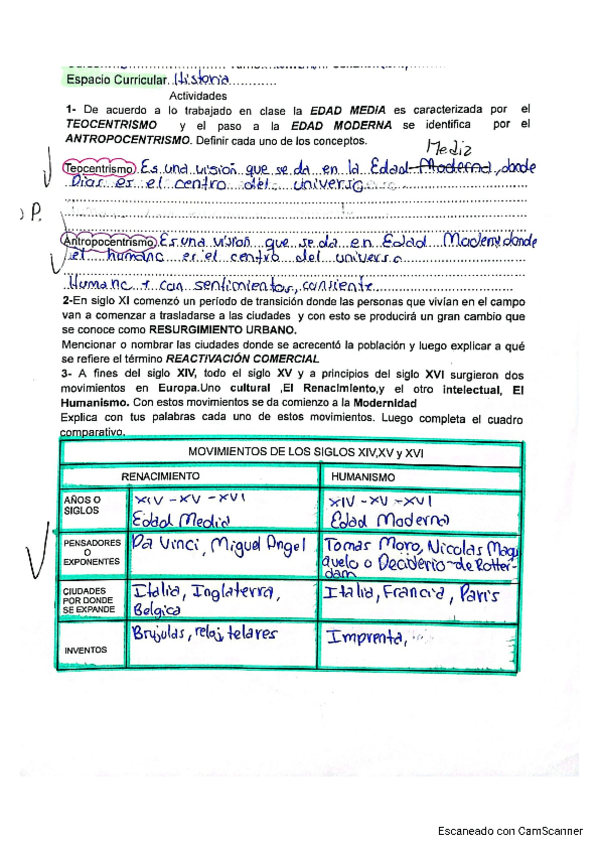 Espacio Curricular. Historia............
Actividades
1- De acuerdo a lo trabajado en clase la EDAD MEDIA es caracterizada por el
TEOCENTRISMO y el paso a la EDAD MODERNA se identifica por el
ANTROPOCENTRISMO. Definir cada uno de los conceptos.
Media
Teocentrismo Es una vision que se da en la Edad Moderna, donde
Dios es el centro del universo
P.
Antropocentrismo Es una vision que se da en Edad Moderna donde
el humano es el centro del universo
Humano + con sentimientos, consiente
2-En siglo XI comenzó un período de transición donde las personas que vivían en el campo
van a comenzar a trasladarse a las ciudades y con esto se producirá un gran cambio que
se conoce como RESURGIMIENTO URBANO.
Mencionar o nombrar las ciudades donde se acrecentó la población y luego explicar a qué
se refiere el término REACTIVACIÓN COMERCIAL
3- A fines del siglo XIV, todo el siglo XV y a principios del siglo XVI surgieron dos
movimientos en Europa.Uno cultural ,El Renacimiento,y el otro intelectual, El
Humanismo. Con estos movimientos se da comienzo a la Modernidad
Explica con tus palabras cada uno de estos movimientos. Luego completa el cuadro
comparativo.
MOVIMIENTOS DE LOS SIGLOS XIV,XV y XVI
RENACIMIENTO HUMANISMO
AÑOS O SIGLOS
XIV - XV - XVI
Edad Media
XIV - XV - XVI
Edad Moderna
PENSADORES O EXPONENTES
Da Vinci, Miguel Angel
Tomas Moro, Nicolas Maq
quelo o Deciderio de Rotter-
dam
CIUDADES POR DONDE SE EXPANDE
Italia, Inglaterra,
Belgica
Italia, Francia, Paris
INVENTOS
Brujulas, reloj, telares
Imprenta,
Escaneado con CamScanner